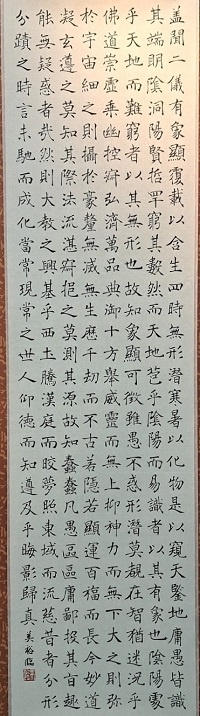 盖聞二儀有象顯覆載以含生四時無形潛寒暑以化物是以窺天鑒地庸愚皆識
其端明陰洞陽賢哲罕窮其數然而天地苞乎陰陽而易識者以其有象也陰陽處
乎天地而難窮者以其無形也故知象顯可徵雖愚不惑形潛莫覩在智猶迷況乎
佛道崇虛乗幽控寂弘濟萬品典御十方舉威靈而無上抑神力而無下大之則弥
於宇宙細之則攝於豪釐無滅無生歷千劫而不古若隱若顯運百福而長今妙道
凝玄遵之莫知其際法流湛寂挹之莫測其源故知蠢蠢凡愚區區庸鄙投其旨趣
能無疑惑者哉然則大教之興基乎西土騰漢庭而皎夢照東域而流慈昔者分形
分蹟之時言未馳而成化當常現常之世人仰德而知遵及乎晦影歸真 美裕臨